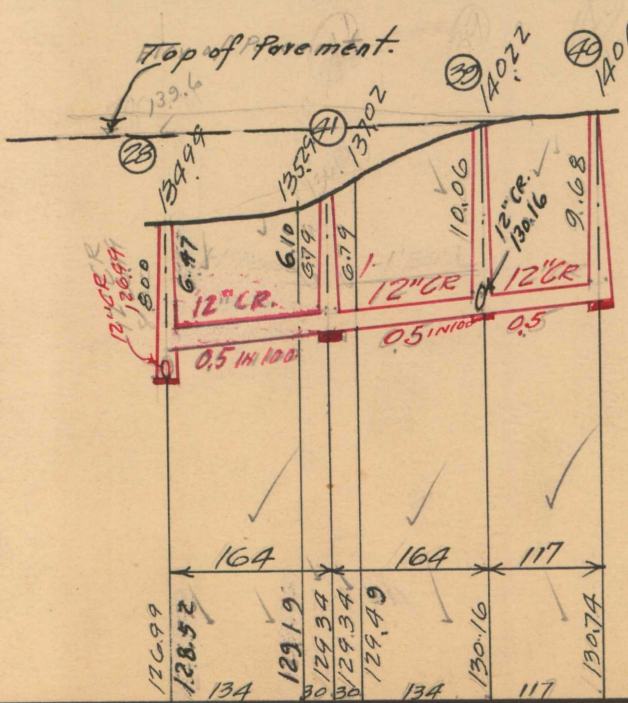 Top of Pavement.
139.6
28
41
39
40
134.99
135.29
137.02
140.22
140
12"CR
126.99
8.00
6.47
6.10
6.79
10.06
12"CR.
130.16
9.68
12"CR.
12"CR
12"CR
0.5 IN 100
0.5 IN 100
0.5
164
164
117
126.99
128.52
129.19
129.34
129.34
129.49
130.16
130.74
134
30
30
134
117